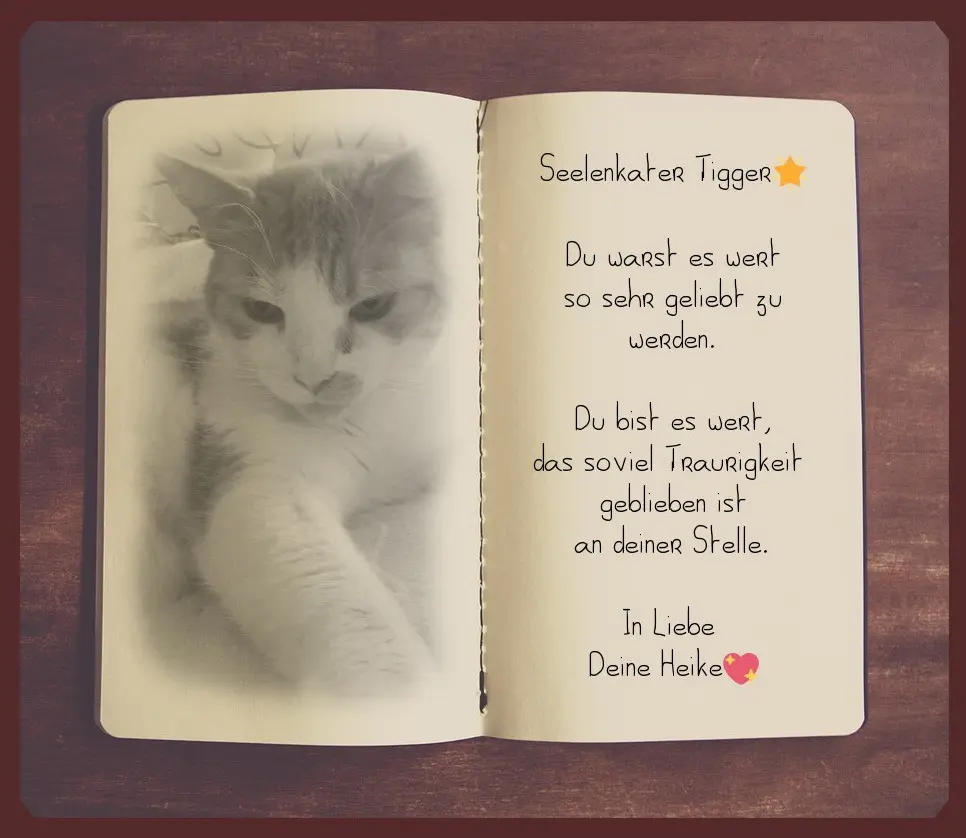 Seelenkater Tigger⭐
Du warst es wert
so sehr geliebt zu
werden.
Du bist es wert,
das soviel Traurigkeit
geblieben ist
an deiner Stelle.
In Liebe
Deine Heike💖